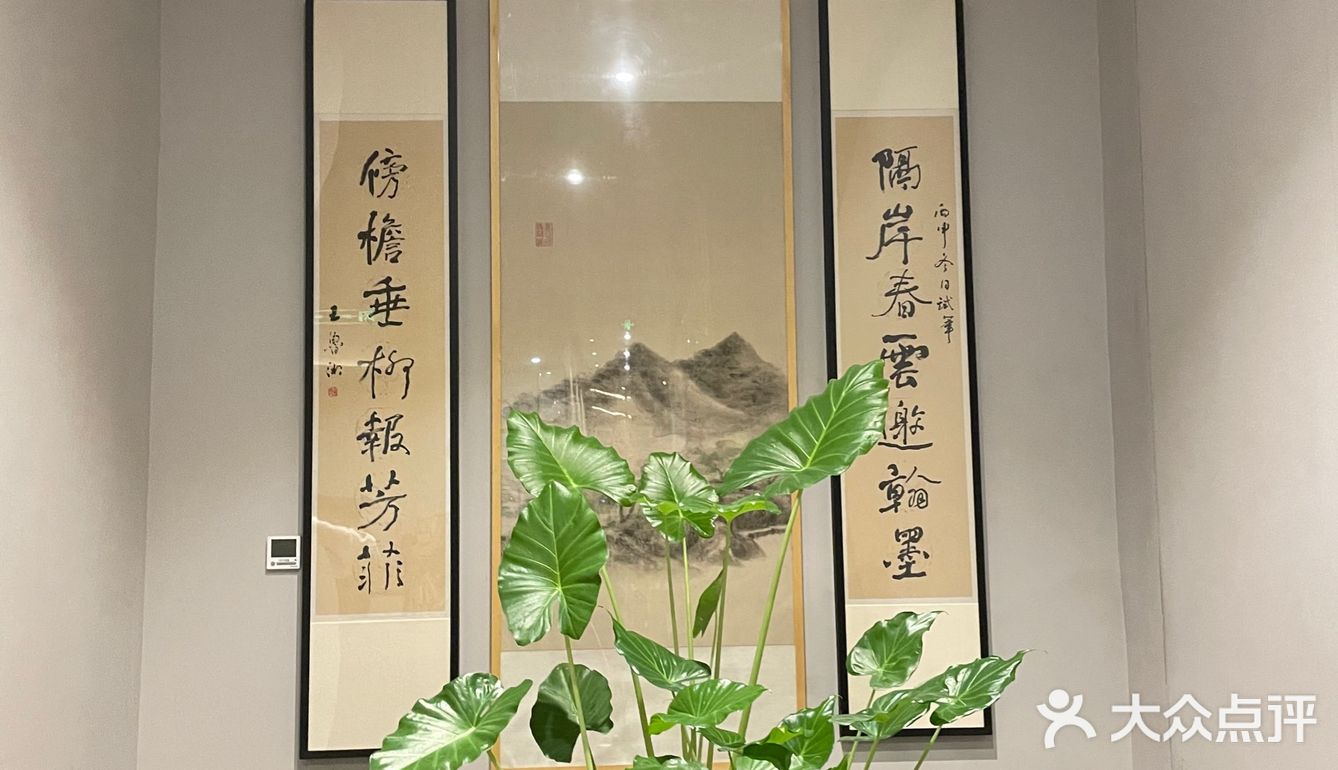 隔岸春雲邀翰墨
丙申冬日試筆
傍檐垂柳報芳菲
王魯湘
大众点评